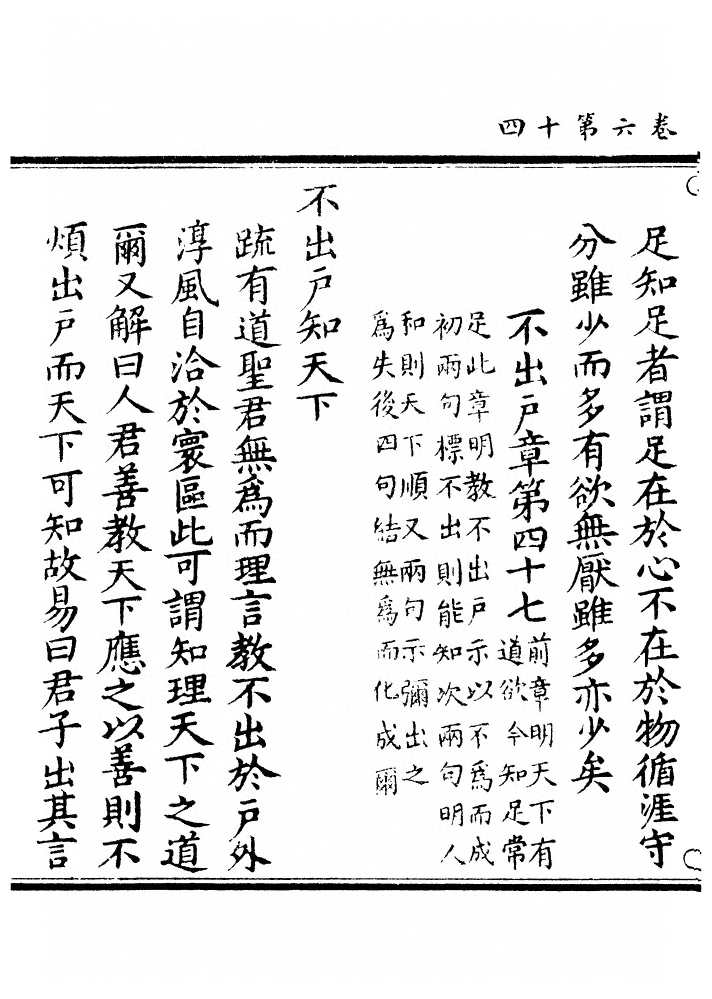 卷六第十四
足知足者謂足在於心不在於物循涯守
分雖少而多有欲無厭雖多亦少矣
不出戶章第四十七
前章明天下有
道欲令知足常
足此章明教不出戶示以不爲而成
初兩句標不出則能知次兩句明人
和則天下順又兩句示彌出之
爲失後四句結無爲而化成爾
不出戶知天下
疏有道聖君無爲而理言教不出於戶外
淳風自洽於寰區此可謂知理天下之道
爾又解曰人君善教天下應之以善則不
煩出戶而天下可知故易曰君子出其言